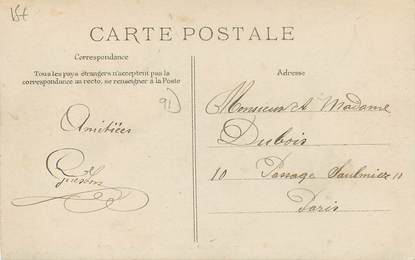 15€
CARTE POSTALE
Correspondance
Tous les pays étrangers n'acceptent pas la
correspondance au recto, se renseigner à la Poste
91
Amitiées
Adresse
Monsieur et Madame
Dubois
10 Passage Saulnier 11
Paris